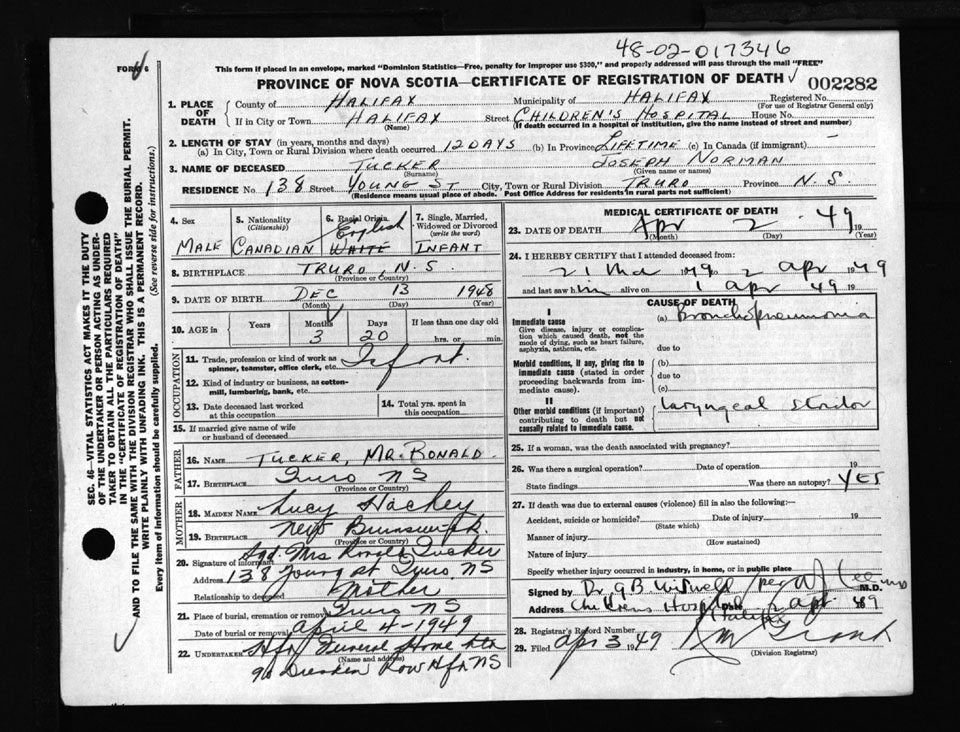 48-02-017346
FORM 6
This form if placed in an envelope, marked "Dominion Statistics—Free, penalty for improper use $300," and properly addressed will pass through the mail "FREE"
PROVINCE OF NOVA SCOTIA—CERTIFICATE OF REGISTRATION OF DEATH ✓ 002282
1. PLACE OF DEATH
County of HALIFAX Municipality of HALIFAX Registered No.
(For use of Registrar General only)
If in City or Town HALIFAX Street CHILDREN'S HOSPITAL House No.
(Name) (If death occurred in a hospital or institution, give the name instead of street and number)
2. LENGTH OF STAY (in years, months and days)
(a) In City, Town or Rural Division where death occurred 12 DAYS (b) In Province LIFETIME (c) In Canada (if immigrant) —
3. NAME OF DECEASED TUCKER JOSEPH NORMAN
(Surname) (Given name or names)
RESIDENCE No. 138 Street YOUNG ST City, Town or Rural Division TRURO Province N.S.
(Residence means usual place of abode. Post Office Address for residents in rural parts not sufficient)
4. Sex
MALE
5. Nationality
(Citizenship)
CANADIAN
6. Racial Origin
English
WHITE
7. Single, Married, Widowed or Divorced
(write the word)
INFANT
8. BIRTHPLACE TRURO, N.S.
(Province or Country)
9. DATE OF BIRTH DEC 13 1948
(Month) (Day) (Year)
10. AGE in
Years Months Days If less than one day old
3 20 hrs. or min.
OCCUPATION
11. Trade, profession or kind of work as spinner, teamster, office clerk, etc. Infant.
12. Kind of industry or business, as cotton-mill, lumbering, bank, etc.
13. Date deceased last worked at this occupation
14. Total yrs. spent in this occupation
15. If married give name of wife or husband of deceased
FATHER
16. NAME TUCKER, MR. RONALD
17. BIRTHPLACE Truro NS
(Province or Country)
MOTHER
18. MAIDEN NAME Lucy Hackey
19. BIRTHPLACE New Brunswick
(Province or Country)
20. Signature of informant Sgd. Mrs Ronald Tucker
Address 138 Young St Truro NS
Relationship to deceased Mother
21. Place of burial, cremation or removal Truro NS
Date of burial or removal April 4-1949
22. UNDERTAKER Hfx Funeral Home Ltd
(Name and address)
90 Dresden Row Hfx NS
MEDICAL CERTIFICATE OF DEATH
23. DATE OF DEATH Apr 2 49 19
(Month) (Day) (Year)
24. I HEREBY CERTIFY that I attended deceased from:
21 Mar 1949 to 2 apr 1949
and last saw him alive on 1 apr 49 19
CAUSE OF DEATH
I
Immediate cause
Give disease, injury or complication which caused death, not the mode of dying, such as heart failure, asphyxia, asthenia, etc.
(a) Bronchopneumonia
due to
Morbid conditions, if any, giving rise to immediate cause (stated in order proceeding backwards from immediate cause).
(b)
due to
(c)
II
Other morbid conditions (if important) contributing to death but not causally related to immediate cause.
Laryngeal stridor
25. If a woman, was the death associated with pregnancy?
26. Was there a surgical operation? Date of operation 19
State findings Was there an autopsy? YES
27. If death was due to external causes (violence) fill in also the following:—
Accident, suicide or homicide? Date of injury 19
(State which)
Manner of injury
(How sustained)
Nature of injury
Specify whether injury occurred in industry, in home, or in public place
Signed by Dr GB Wiswell per Lee M.D.
Address Childrens Hospital Date 2 apr. 49
Halifax
28. Registrar's Record Number
29. Filed Apr 3 1949
(Division Registrar)
SEC. 46—VITAL STATISTICS ACT MAKES IT THE DUTY OF THE UNDERTAKER OR PERSON ACTING AS UNDERTAKER TO OBTAIN ALL THE PARTICULARS REQUIRED IN THE "CERTIFICATE OF REGISTRATION OF DEATH" AND TO FILE THE SAME WITH THE DIVISION REGISTRAR WHO SHALL ISSUE THE BURIAL PERMIT.
WRITE PLAINLY WITH UNFADING INK. THIS IS A PERMANENT RECORD.
Every item of Information should be carefully supplied. (See reverse side for instructions.)